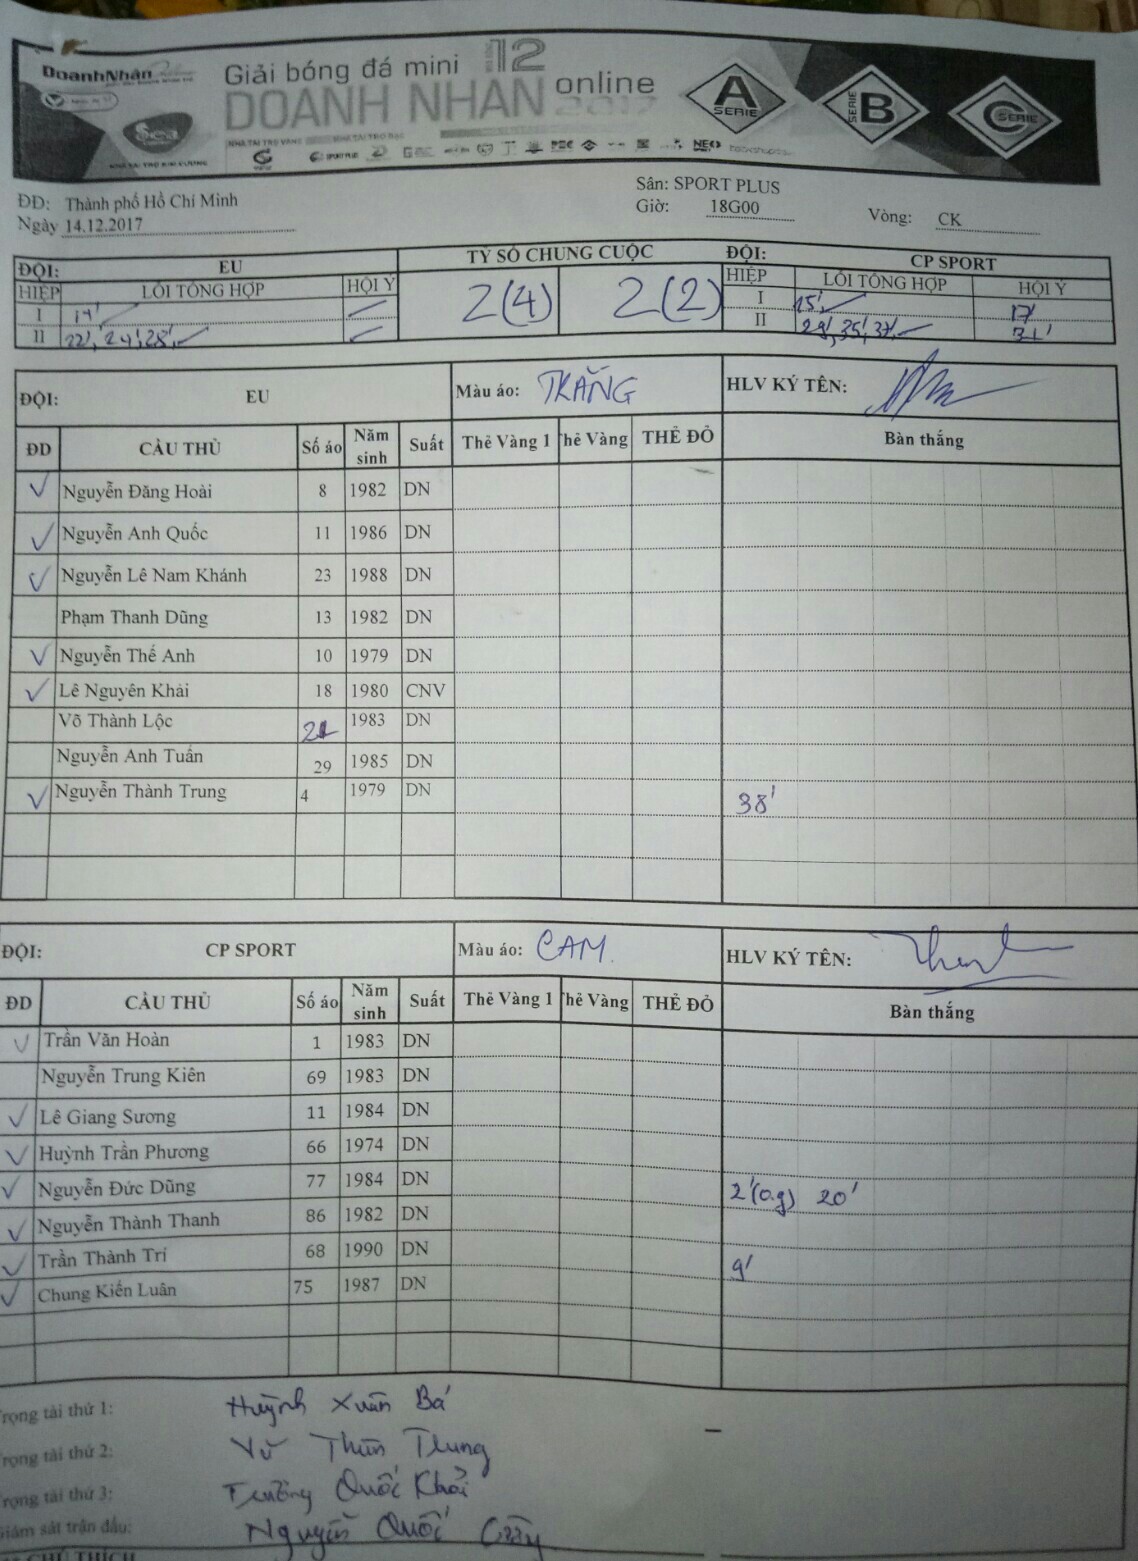 DoanhNhân
Giải bóng đá mini 12
DOANH NHAN online
2017
A SERIE
SERIE B
C SERIE
Sea
NHÀ TÀI TRỢ VÀNG
NHÀ TÀI TRỢ KIM CƯƠNG
NEXO
ĐĐ: Thành phố Hồ Chí Minh
Sân: SPORT PLUS
Ngày 14.12.2017
Giờ: 18G00
Vòng: CK
ĐỘI: EU TỶ SỐ CHUNG CUỘC ĐỘI: CP SPORT
HIỆP LỖI TỔNG HỢP HỘI Ý 2(4) 2(2) HIỆP LỖI TỔNG HỢP HỘI Ý
I 14' I 15' 17'
II 22', 24', 28' II 29', 35', 37' 31'
ĐỘI: EU Màu áo: TRẮNG HLV KÝ TÊN:
ĐD CẦU THỦ Số áo Năm sinh Suất Thẻ Vàng 1 Thẻ Vàng THẺ ĐỎ Bàn thắng
Nguyễn Đăng Hoài 8 1982 DN
Nguyễn Anh Quốc 11 1986 DN
Nguyễn Lê Nam Khánh 23 1988 DN
Phạm Thanh Dũng 13 1982 DN
Nguyễn Thế Anh 10 1979 DN
Lê Nguyên Khải 18 1980 CNV
Võ Thành Lộc 21 1983 DN
Nguyễn Anh Tuấn 29 1985 DN
Nguyễn Thành Trung 4 1979 DN 38'
ĐỘI: CP SPORT Màu áo: CAM. HLV KÝ TÊN:
ĐD CẦU THỦ Số áo Năm sinh Suất Thẻ Vàng 1 Thẻ Vàng THẺ ĐỎ Bàn thắng
Trần Văn Hoàn 1 1983 DN
Nguyễn Trung Kiên 69 1983 DN
Lê Giang Sương 11 1984 DN
Huỳnh Trần Phương 66 1974 DN
Nguyễn Đức Dũng 77 1984 DN 2'(o.g) 20'
Nguyễn Thành Thanh 86 1982 DN
Trần Thành Trí 68 1990 DN 9'
Chung Kiến Luân 75 1987 DN
Trọng tài thứ 1: Huỳnh Xuân Bá
Trọng tài thứ 2: Vũ Trung
Trọng tài thứ 3: Trường Quốc Khải
Giám sát trận đấu: Nguyễn Quốc
CHÚ THÍCH